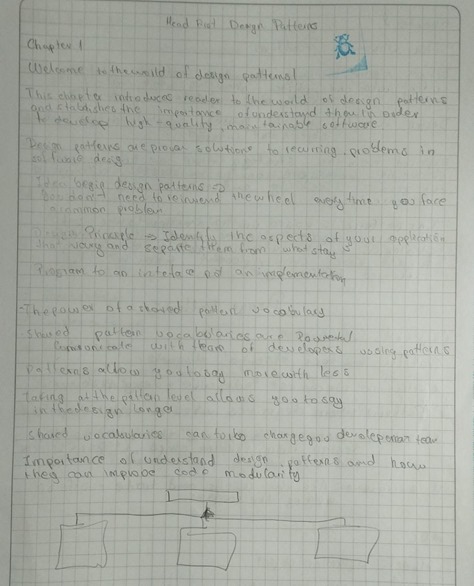 Head First Design Patterns
Chapter 1
Welcome to the world of design patterns!
This chapter introduces reader to the world of design patterns
and stablishes the importance of understand them in order
to develop high-quality, maintainable software
Design patterns are proven solutions to recurring problems in
software
design patterns →
You don't need to reinvend the wheel every time you face
a common problem
Design Principle → Identify the aspects of your application
that vary and separate them from what stay
Program to an interface not an implementation
- The power of a shared pattern vocabulary
Shared pattern vocabularies are Powerful
Communicate with team of developers using patterns
Patterns allow you to say more with less
at the pattern level allows you to say
in the design longer
Shared vocabularies can turbo charge you development team
Importance of understand design patterns and how
they can improve code modularity